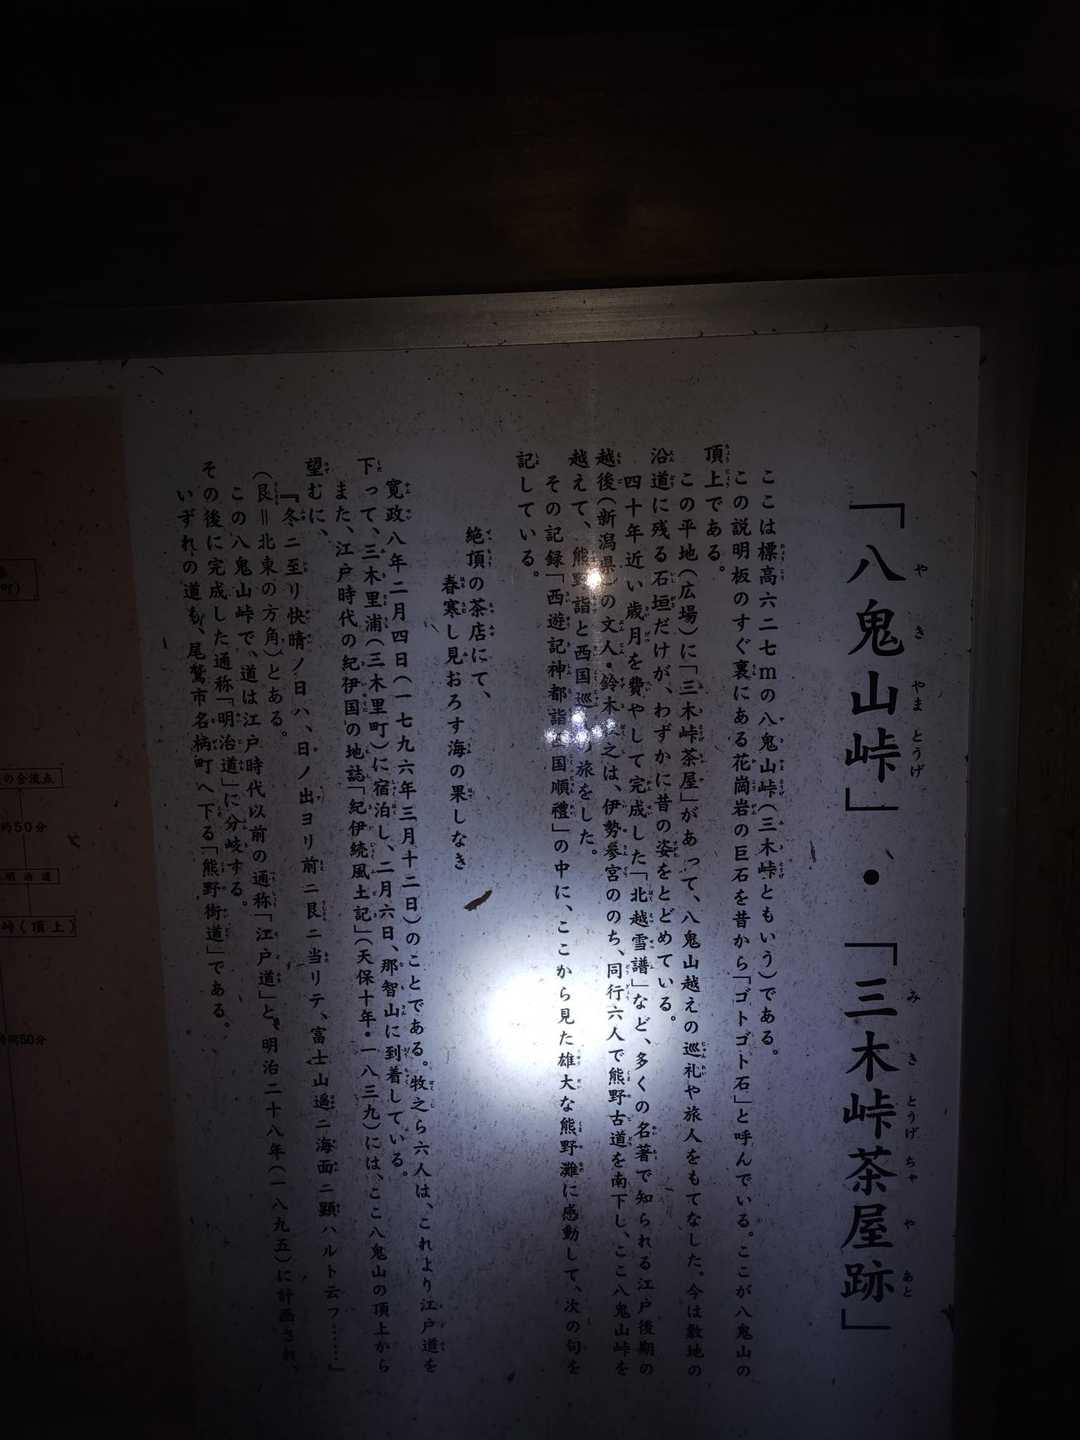 「八鬼山峠」・「三木峠茶屋跡」
ここは標高六二七mの八鬼山峠(三木峠ともいう)である。
この説明板のすぐ裏にある花崗岩の巨石を昔から「ゴトゴト石」と呼んでいる。ここが八鬼山の
頂上である。
この平地(広場)に「三木峠茶屋」があって、八鬼山越えの巡礼や旅人をもてなした。今は敷地の
沿道に残る石垣だけが、わずかに昔の姿をとどめている。
四十年近い歳月を費やして完成した「北越雪譜」など、多くの名著で知られる江戸後期の
越後(新潟県)の文人・鈴木之は、伊勢参宮ののち、同行六人で熊野古道を南下し、ここ八鬼山峠を
越えて、熊野詣と西国巡の旅をした。
その記録「西遊記神都詣国順禮」の中に、ここから見た雄大な熊野灘に感動して、次の句を
記している。
絶頂の茶店にて、
春寒し見おろす海の果しなき
寛政八年二月四日(一七九六年三月十二日)のことである。牧之ら六人は、これより江戸道を
下って、三木里浦(三木里町)に宿泊し、二月六日、那智山に到着している。
また、江戸時代の紀伊国の地誌「紀伊続風土記」(天保十年・一八三九)には、ここ八鬼山の頂上から
望むに、
『冬ニ至リ快晴ノ日ハ、日ノ出ヨリ前ニ艮ニ当リテ、富士山遙ニ海面ニ顕ハルト云フ……』
(艮＝北東の方角)とある。
この八鬼山峠で、道は江戸時代以前の通称「江戸道」と、明治二十八年(一八九五)に計画され、
その後に完成した通称「明治道」に分岐する。
いずれの道も、尾鷲市名柄町へ下る「熊野街道」である。
町)
の合流点
約50分
明治道
峠(頂上)
時間50分